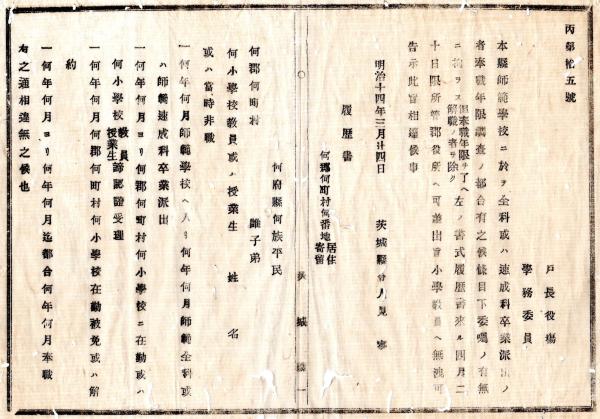 丙第拾五號
戸長役場
學務委員
本縣師範學校ニ於テ全科或ハ速成科卒業派出ノ
者奉職年限調査ノ都合有之候條目下委囑ノ有無
ニ拘ラス但奉職年限ヲ了ヘ解職ノ者ヲ除ク左ノ書式履歷書來ル四月二
十日限所管郡役所ヘ可差出旨小學教員ヘ無洩可
告示此旨相達候事
明治十四年三月廿四日
茨城縣令人見寧
履歷書
何郡何町村何番地居住寄留
何府縣何族平民
何郡何町村
誰子弟
何小學校教員或ハ授業生 姓名
或ハ當時非職
一何年何月師範學校ヘ入リ何年何月師範全科或
ハ師範速成科卒業派出
一何年何月ヨリ何郡何町村何小學校ニ在勤或ハ
何小學校教員授業生許認證受理
一何年何月何郡何町村何小學校在勤被免或ハ解
約
一何年何月ヨリ何年何月迄都合何年何月奉職
右之通相違無之候也
茨城縣